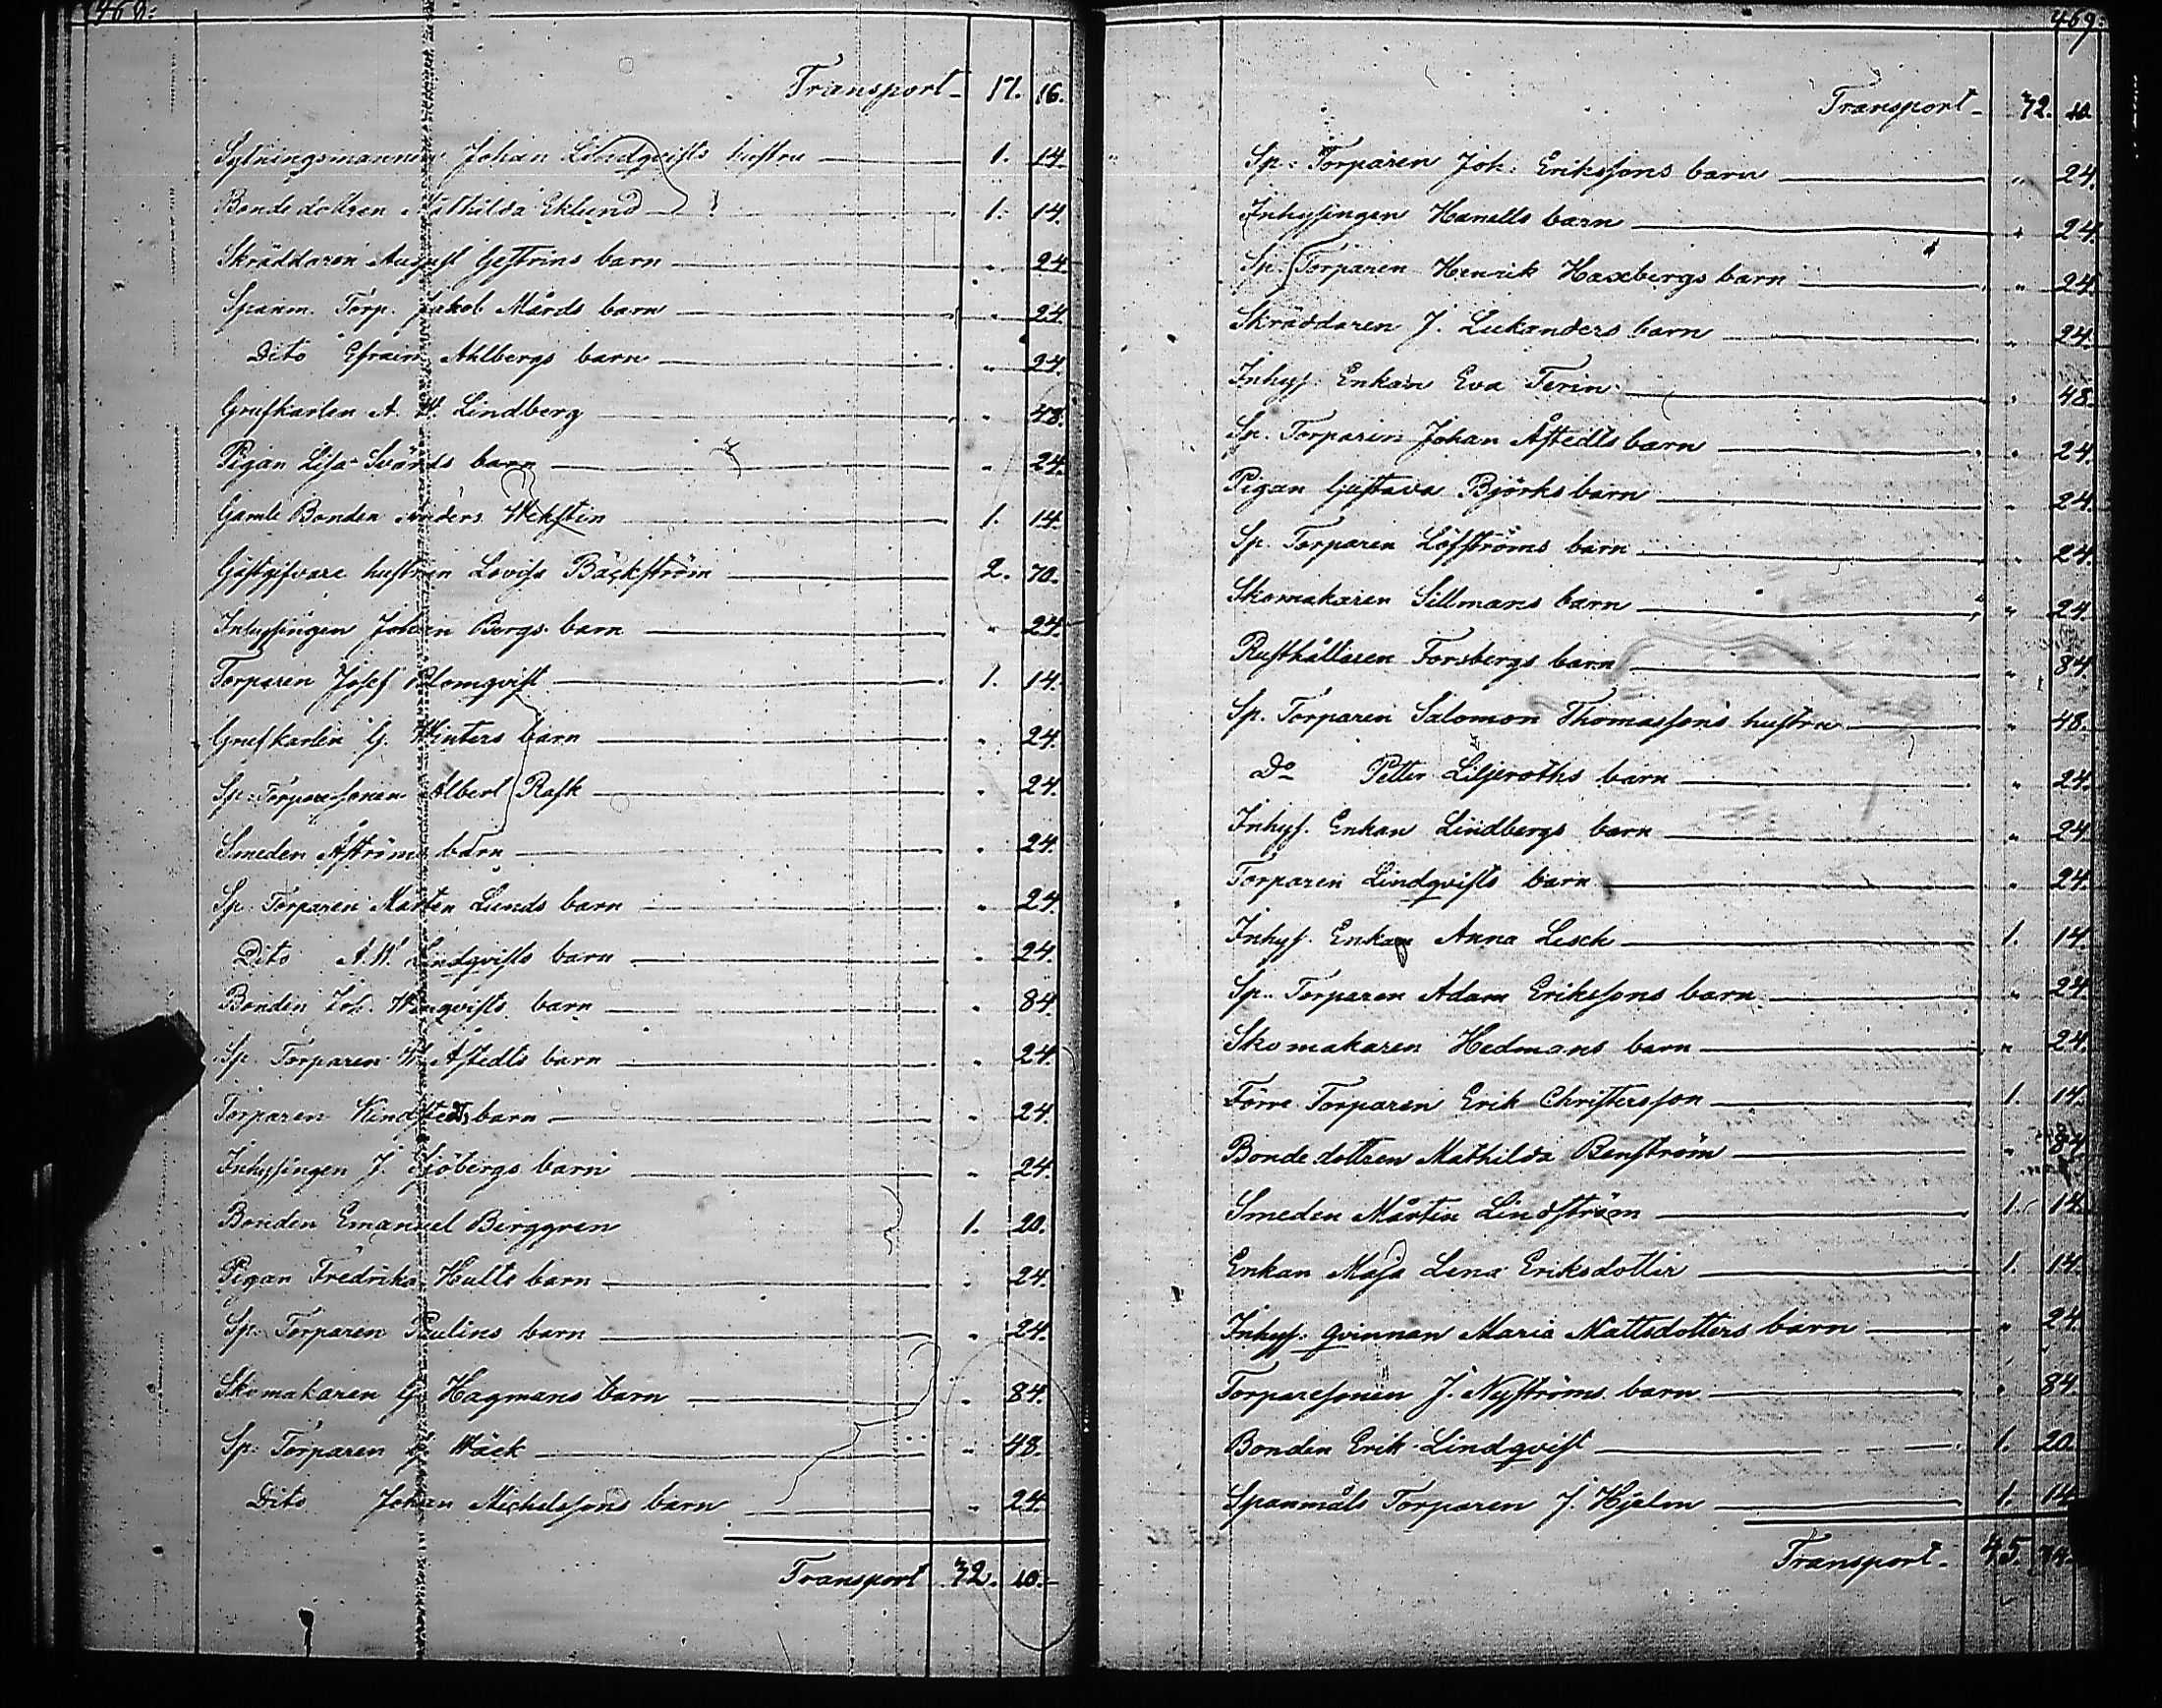 469.
Transport 17. 16.
Sytningsmannen Johan Lindqvists hustru 1. 14.
Bondedottren Mathilda Eklund 1. 14.
Skräddaren August Gestrins barn " 24
Spanm. Torp. Jakob Mårds barn " 24.
Dito Efraim Ahlbergs barn " 24.
Grufkarlen A. W. Lindberg " 48.
Pigan Lisa Svärds barn " 24.
Gamle Bonden Anders Wekstin 1. 14.
Gästgifvare hustrun Lovisa Bäckström 2. 70.
Inhysingen Johan Bergs barn " 24.
Torparen Josef Blomqvist 1. 14.
Grufkarlen G. Winters barn " 24.
Sp: Torparesonen Albert Rask " 24.
Smeden Åströms barn " 24.
Sp. Torparen Mårten Lunds barn " 24.
Dito A. W. Lindqvists barn " 24.
Bonden Joh. barn " 84.
Sp. Torparen W. Åstedts barn " 24.
Torparen barn " 24.
Inhysingen J. Sjöbergs barn " 24.
Bonden Emanuel Berggren 1. 20.
Pigan Fredrika Hults barn " 24.
Sp. Torparen Paulins barn " 24.
Skomakaren G. Hagmans barn " 84.
Sp: Torparen Wäck " 48.
Dito Johan Michelssons barn " 24.
Transport 32. 10.
469.
Transport 32. 10.
Sp: Torparen Joh: Erikssons barn " 24.
Inhysingen Hanells barn " 24.
Sp. Torparen Henrik Haxbergs barn " 24.
Skräddaren J. Lukanders barn " 24.
Inhys. Enkan Eva Terin " 48.
Sp. Torparen Johan Åstedts barn " 24.
Pigan Gustava Björks barn " 24.
Sp. Torparen Löfströms barn " 24.
Skomakaren Sillmans barn " 24.
Rusthållaren Forsbergs barn " 84.
Sp. Torparen Salomon Thomassons hustru " 48.
Do Petter Liljeroths barn " 24.
Inhys. Enkan Lindbergs barn " 24.
Torparen Lindqvists barn " 24.
Inhys. Enkan Anna Lesch 1. 14.
Sp. Torparen Adam Erikssons barn " 24.
Skomakaren Hedmans barn " 24.
Förre Torparen Erik Christersson 1. 14.
Bondedottren Mathilda Renström " 84.
Smeden Mårten Lindström 1. 14.
Enkan Maja Lena Eriksdotter 1. 14.
Inhys: Qvinnan Maria Mattsdotters barn " 24.
Torparesonen J. Nyströms barn " 84.
Bonden Erik Lindqvist 1. 20.
Spanmåls Torparen J. Hjelm 1. 14.
Transport 45.